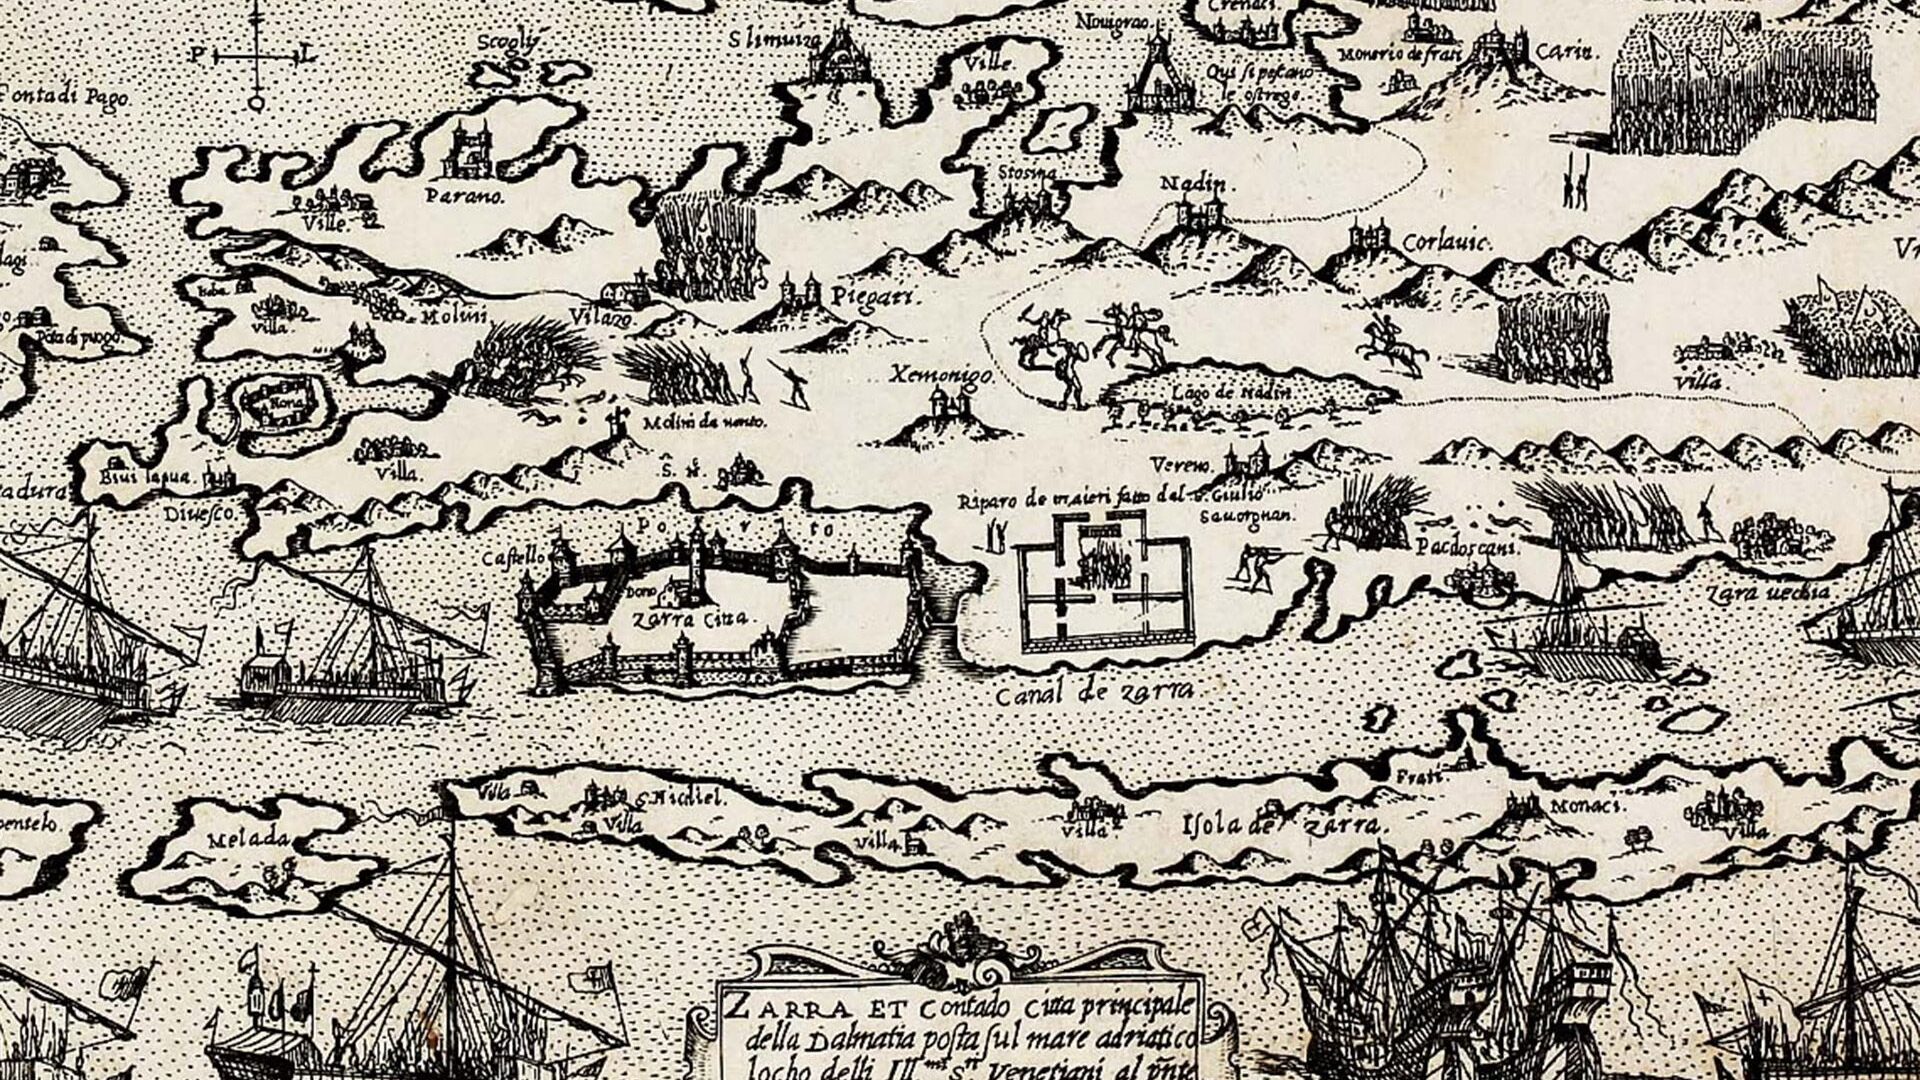 Crenaci.
Nouigrao.
Slimuiza
Scogly
P L
Ville.
Monerio de frati
Carin.
Qui si pescano
le ostrege
Ponta di Pago.
Stosina
Nadin.
Parano.
Ville.
Corlauic.
Piegari.
Villa.
Molini
Vilano
Pota di puogo.
Xemonigo.
Villa.
Lago de Nadin
Nona
Molini da uento.
Villa.
Vereno.
Riparo de maieri fatto dal S. Giulio
Sauorgnan.
Diuesco.
Porto
Castello
Domo
Zarra Citta.
Pacdoscani.
Zara uechia.
Canal de zarra
Frati
Villa
S. Michiel.
Villa
Villa
Villa
Isola de zarra.
Monaci.
Villa
Melada
ZARRA ET Contado Citta principale
della Dalmatia posta sul mare adriatico
locho delli Ill.mi S.ri Venetiani al